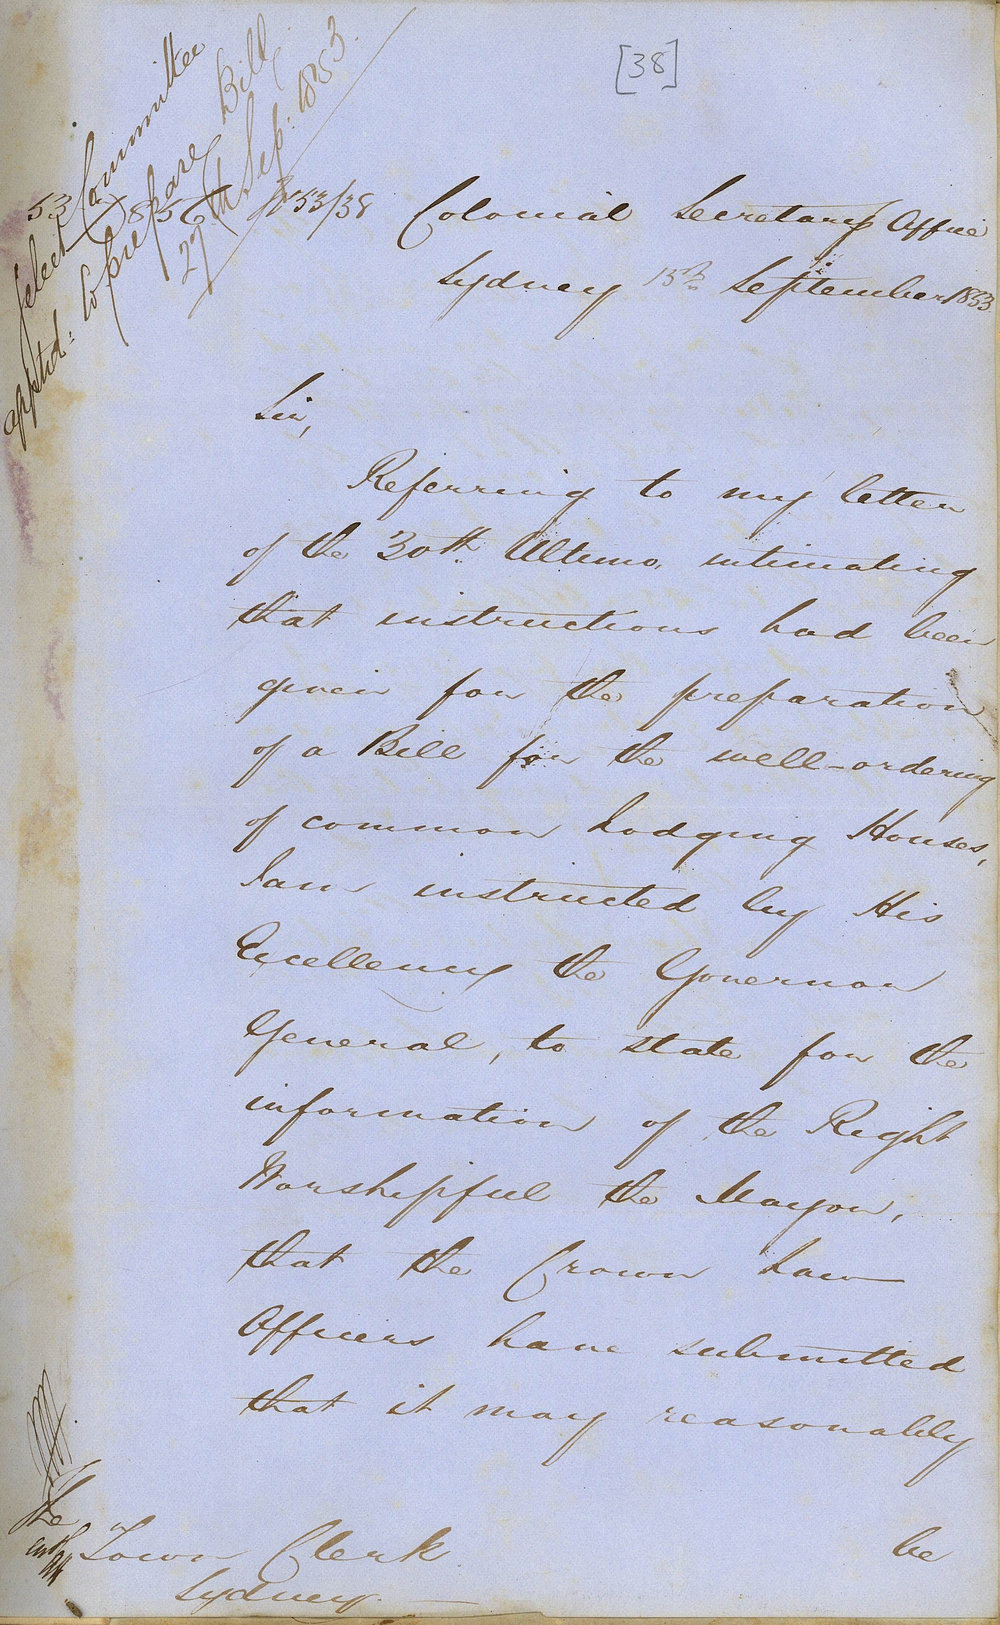 [38]
Select Committee
apptd: to prepare Bill
27th Sep: 1853.
53/38 Colonial Secretarys Office
Sydney 13th September 1853.
Sir,
Referring to my letter
of the 30th Ultimo, intimating
that instructions had been
given for the preparation
of a Bill for the well-ordering
of common Lodging Houses,
I am instructed by His
Excellency the Governor
General, to state for the
information of the Right
Worshipful the Mayor,
that the Crown Law
Officers have submitted
that it may reasonably
be
The
Town Clerk
Sydney.